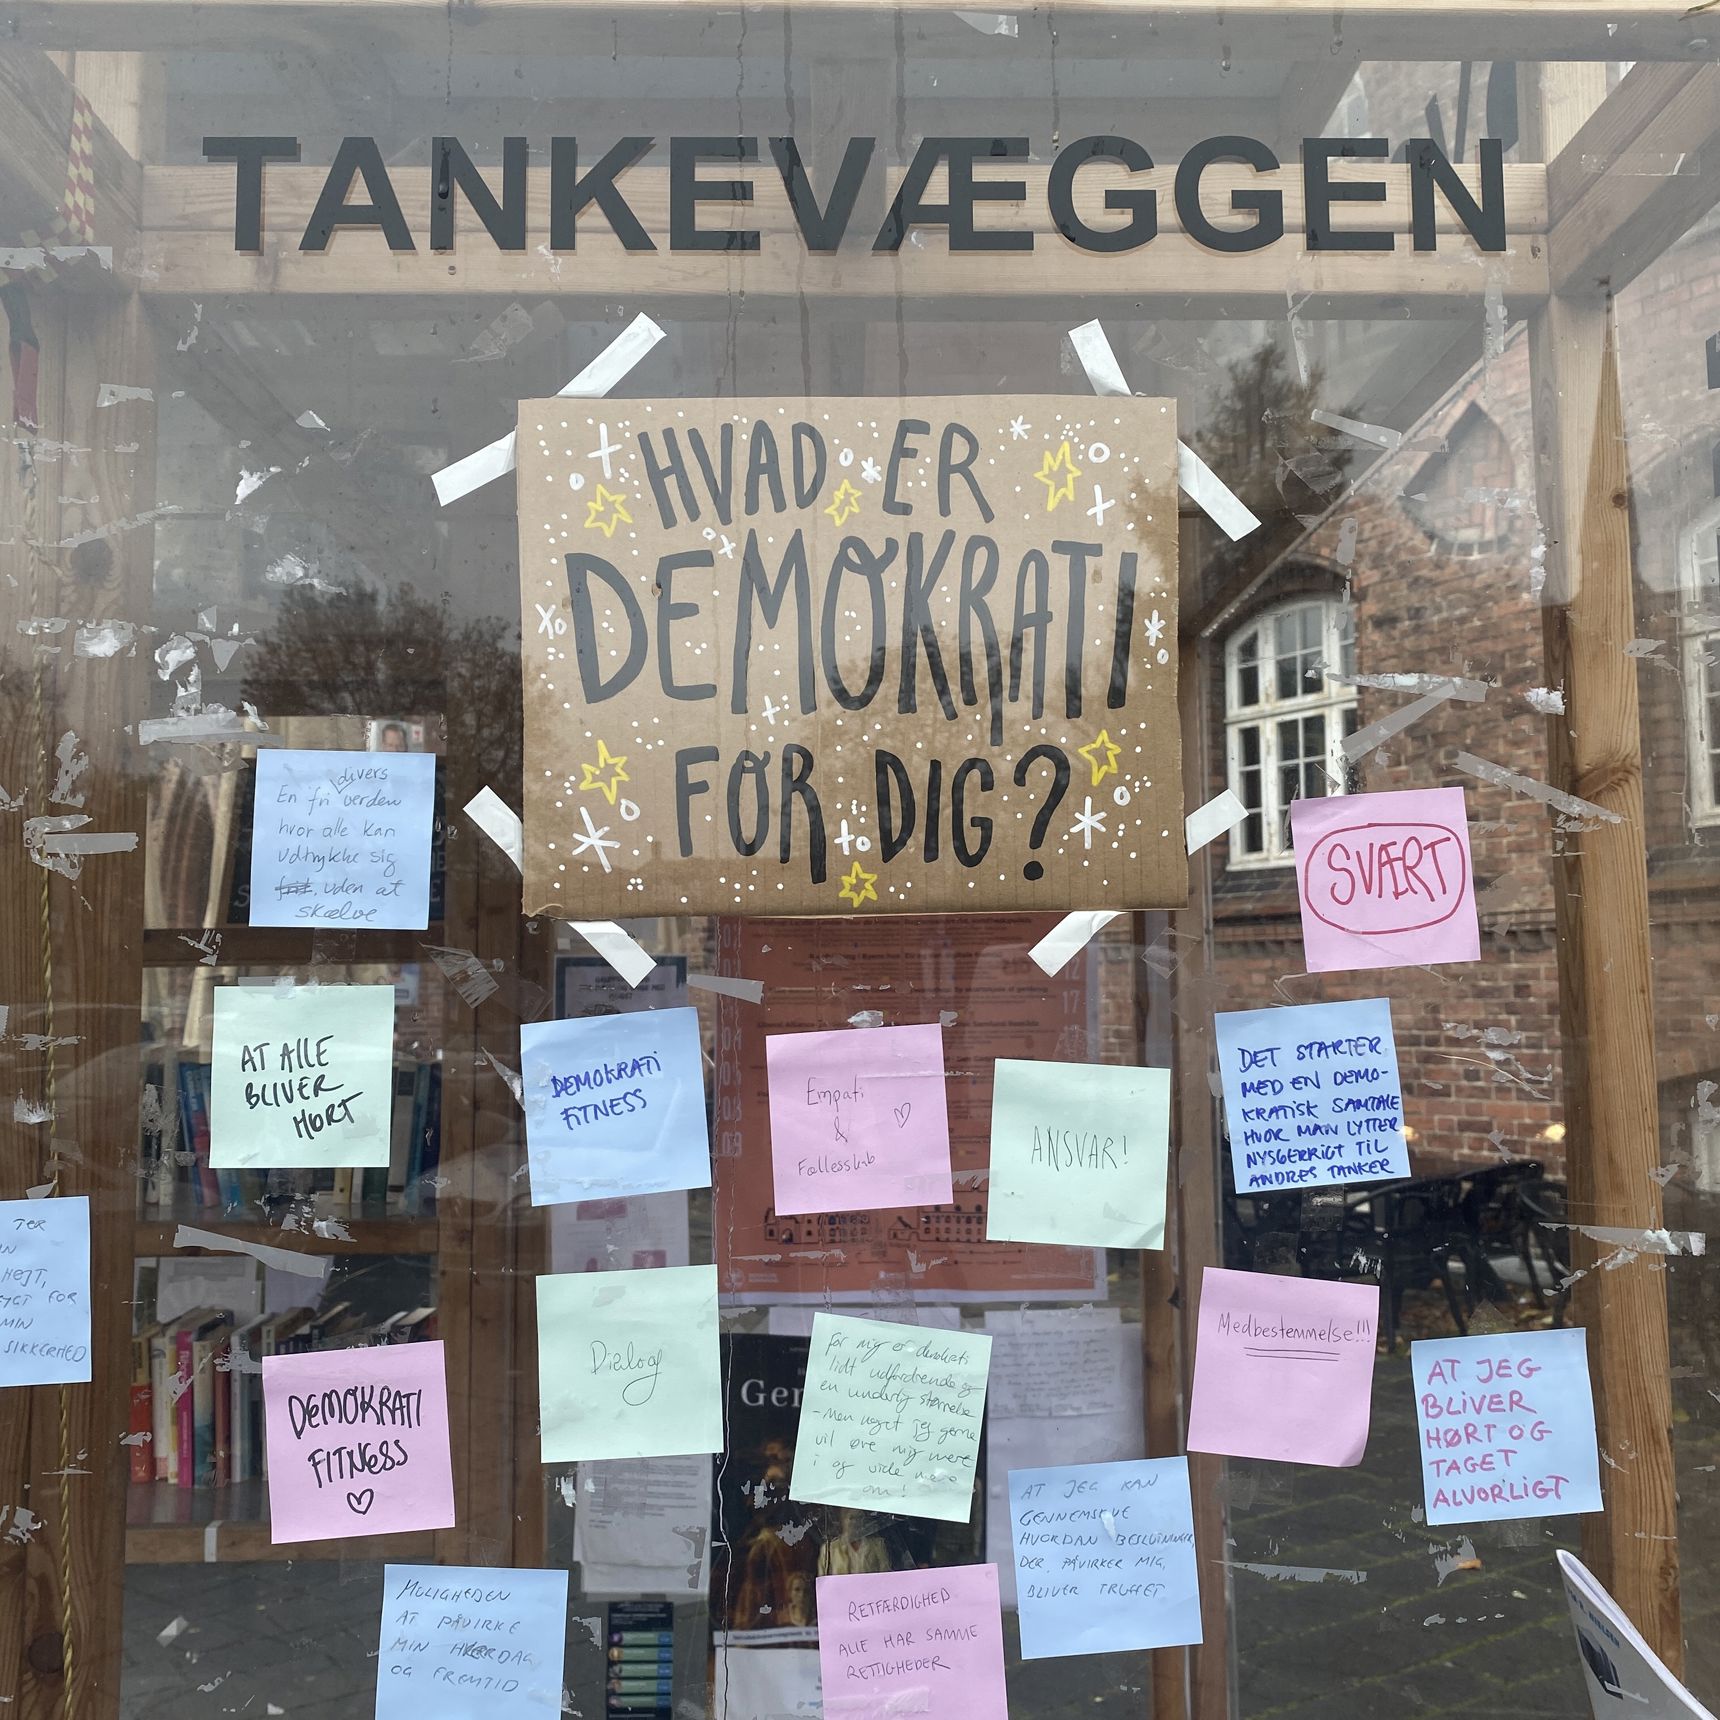 TANKEVÆGGEN
HVAD ER
DEMOKRATI
FOR DIG?
divers
En fri verden
hvor alle kan
udtrykke sig
frit, uden at
skælve
SVÆRT
AT ALLE
BLIVER
HØRT
DEMOKRATI
FITNESS
Empati
&
Fællesskab
ANSVAR!
DET STARTER
MED EN DEMO-
KRATISK SAMTALE
HVOR MAN LYTTER
NYSGERRIGT TIL
ANDRES TANKER
HØJT,
FOR
MIN
SIKKERHED
DEMOKRATI
FITNESS
Dialog
For mig er demokrati
lidt udfordrende og
en underlig størrelse
- Men noget jeg gerne
vil øve mig mere
i og vide mere
om!
Medbestemmelse!!!
AT JEG
BLIVER
HØRT OG
TAGET
ALVORLIGT
MULIGHEDEN
AT PÅVIRKE
MIN HVERDAG
OG FREMTID
RETFÆRDIGHED
ALLE HAR SAMME
RETTIGHEDER
AT JEG KAN
GENNEMSKUE
HVORDAN BESLUTNINGER,
DER PÅVIRKER MIG,
BLIVER TRUFFET
Ger
17